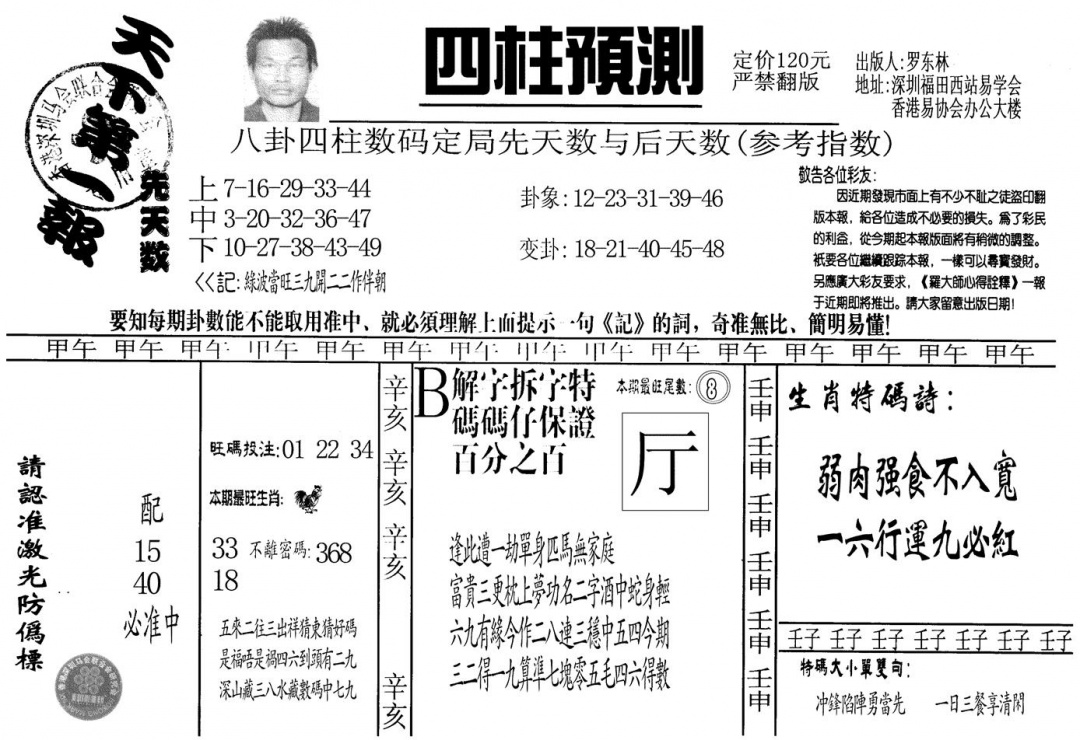 天下第一報
四柱預測
定价120元
严禁翻版
出版人:罗东林
地址:深圳福田西站易学会
香港易协会办公大楼
八卦四柱数码定局先天数与后天数(参考指数)
先天数
上 7-16-29-33-44
中 3-20-32-36-47
下 10-27-38-43-49
<<記:綠波當旺三九開二二作伴朝
卦象:12-23-31-39-46
变卦:18-21-40-45-48
敬告各位彩友:
因近期發現市面上有不少不耻之徒盜印翻
版本報,給各位造成不必要的損失。爲了彩民
的利益,從今期起本報版面將有稍微的調整。
衹要各位繼續跟踪本報,一樣可以尋寶發財。
另應廣大彩友要求,《羅大師心得詮釋》一報
于近期即將推出。請大家留意出版日期!
要知每期卦數能不能取用准中、就必須理解上面提示一句《記》的詞,奇准無比、簡明易懂!
甲午 甲午 甲午 甲午 甲午 甲午 甲午 甲午 甲午 甲午 甲午 甲午 甲午 甲午 甲午
請認准激光防僞標
配
15
40
必准中
旺碼投注:01 22 34
本期最旺生肖:
33 不離密碼:368
18
五來二往三出祥猜東猜好碼
是福唔是禍四六到頭有二九
深山藏三八水藏數碼中七九
辛亥
辛亥
辛亥
辛亥
B
解字拆字特
碼碼仔保證
百分之百
本期最旺尾數:8
厅
逢此遭一劫單身匹馬無家庭
富貴三更枕上夢功名二字酒中蛇身輕
六九有緣今作二八連三穩中五四今期
三二得一九算準七塊零五毛四六得數
壬申
壬申
壬申
壬申
壬申
壬申
生肖特碼詩:
弱肉强食不入寬
一六行運九必紅
壬子 壬子 壬子 壬子 壬子 壬子 壬子
特碼大小單雙句:
冲鋒陷陣勇當先 一日三餐享清閑